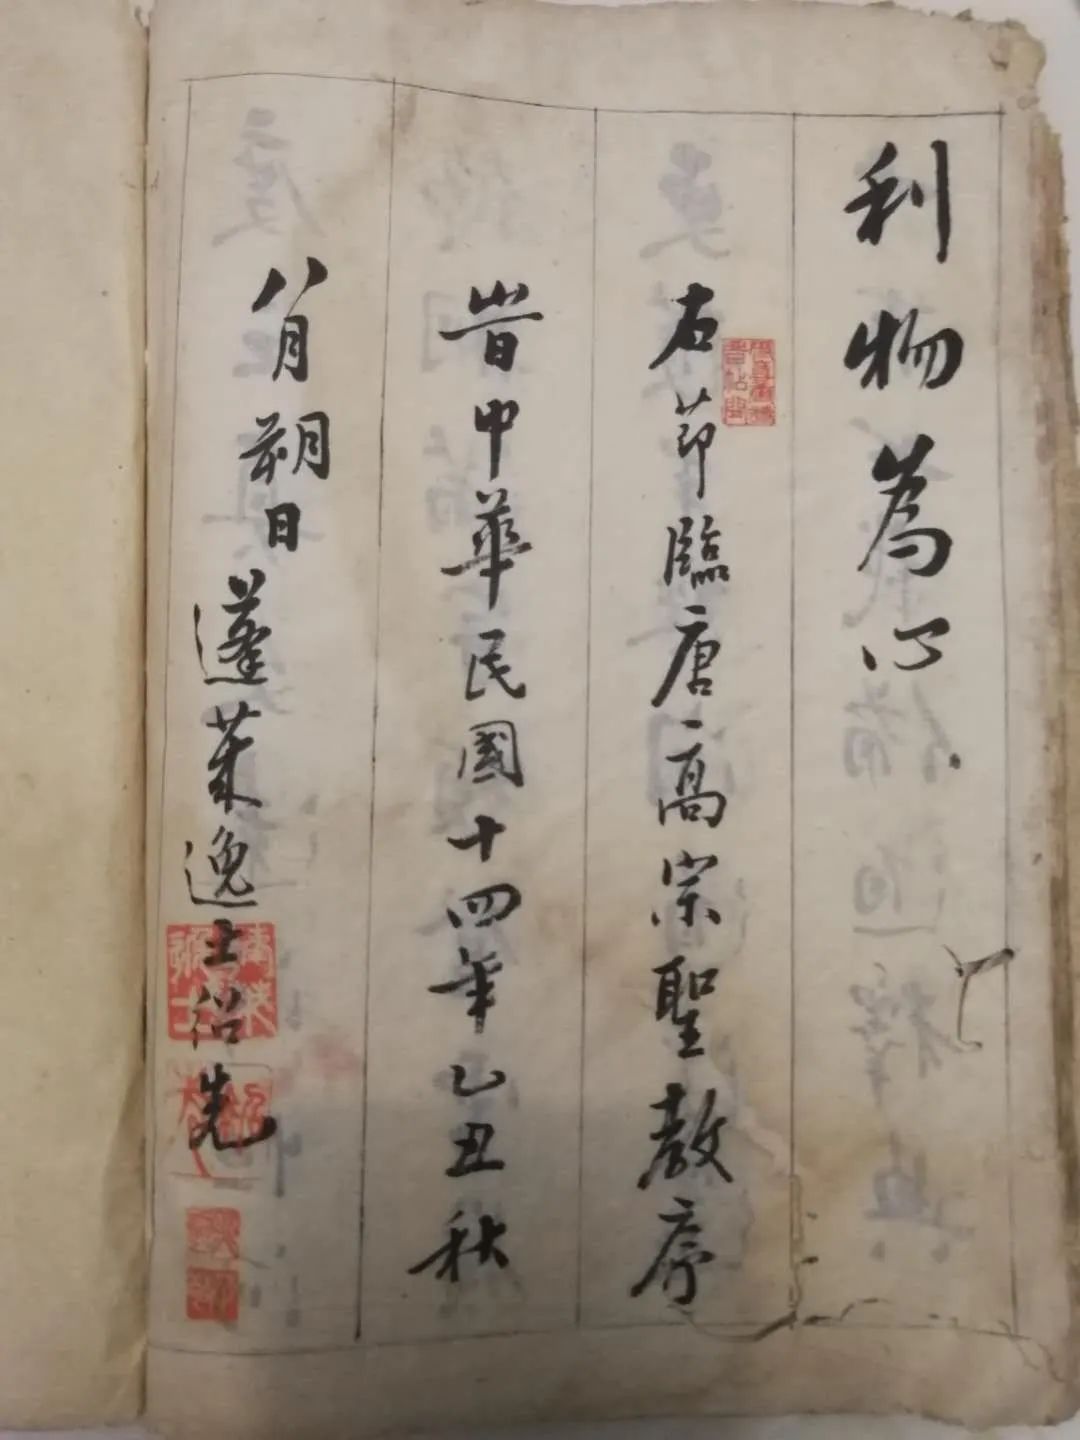 利物為心
右節臨唐高宗聖教序
旹中華民國十四年乙丑秋
八月朔日蓬萊逸士紹先